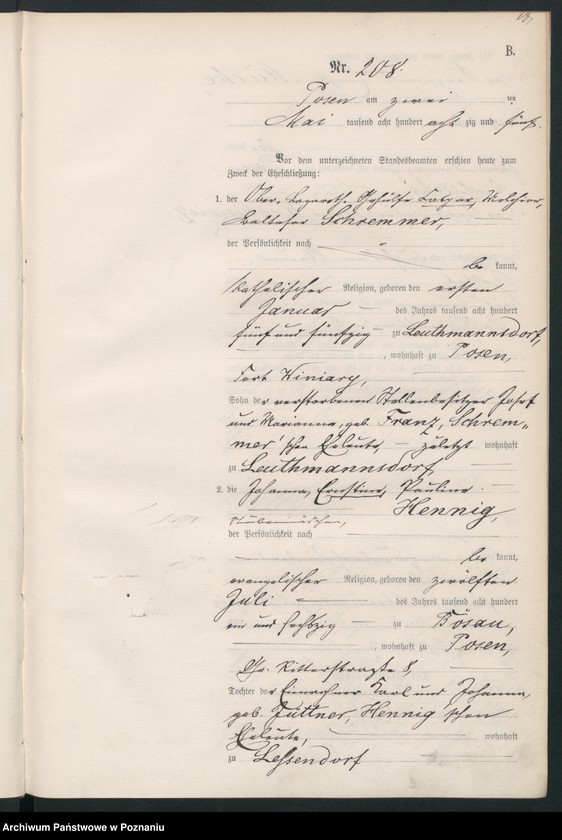 B.
Nr. 208.
Posen am zwei ten
Mai tausend acht hundert acht zig und fünf.
Vor dem unterzeichneten Standesbeamten erschien heute zum
Zweck der Eheschließung:
1. der Ober-Lazareth-Gehülfe Caspar, Melchior,
Balthasar Schremmer,
der Persönlichkeit nach
be kannt,
katholischer Religion, geboren den ersten
Januar des Jahres tausend acht hundert
fünf und fünfzig zu Leuthmannsdorf,
, wohnhaft zu Posen,
Fort Winiary,
Sohn der verstorbenen Stellenbesitzer Josef
und Marianna, geb. Franz, Schrem-
mer'schen Eheleute, zuletzt wohnhaft
zu Leuthmannsdorf
2. die Johanna, Ernstine, Pauline
Hennig,
Stubenmädchen,
der Persönlichkeit nach
be kannt,
evangelischer Religion, geboren den zwölften
Juli des Jahres tausend acht hundert
ein und sechszig zu Bösau,
, wohnhaft zu Posen,
Gr. Ritterstraße 8,
Tochter der Einwohner Karl und Johanna,
geb. Jüttner, Hennig'schen
Eheleute, wohnhaft
zu Lessendorf
Archiwum Państwowe w Poznaniu